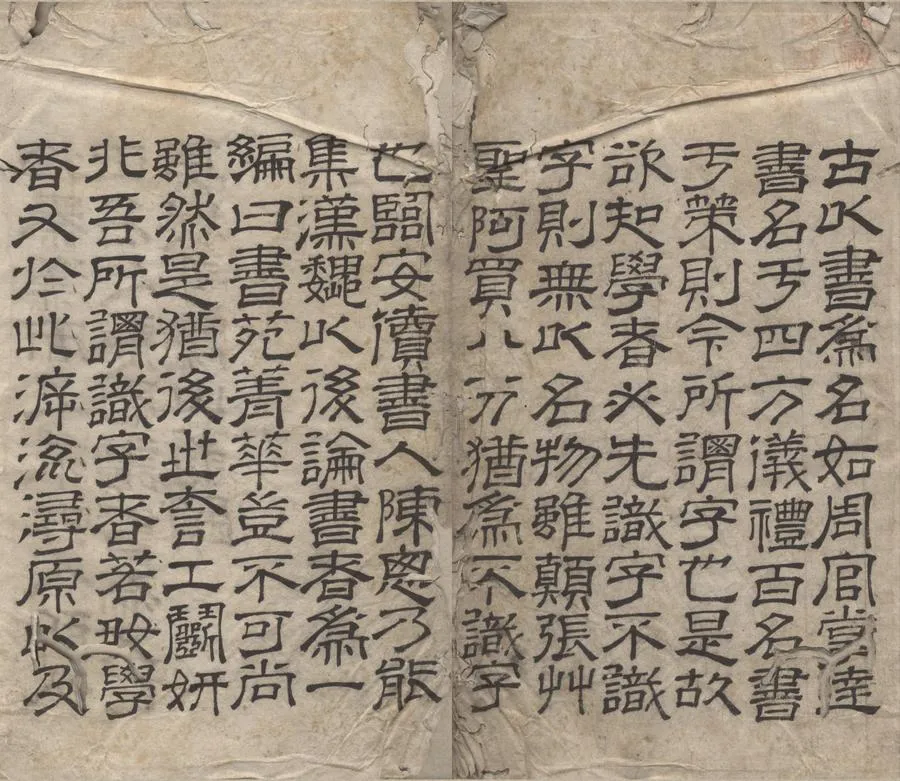 古以書爲名如周官掌達
書名于四方儀禮百名書
于策則今所謂字也是故
欲知學者必先識字不識
字則無以名物雖顛張艸
聖阿買八分猶爲不識字
也臨安儥書人陳思乃能
集漢魏以後論書者爲一
編曰書苑菁華豈不可尚
雖然是猶後世夸工鬭妍
非吾所謂識字者若好學
者又於此泝流潯原以及